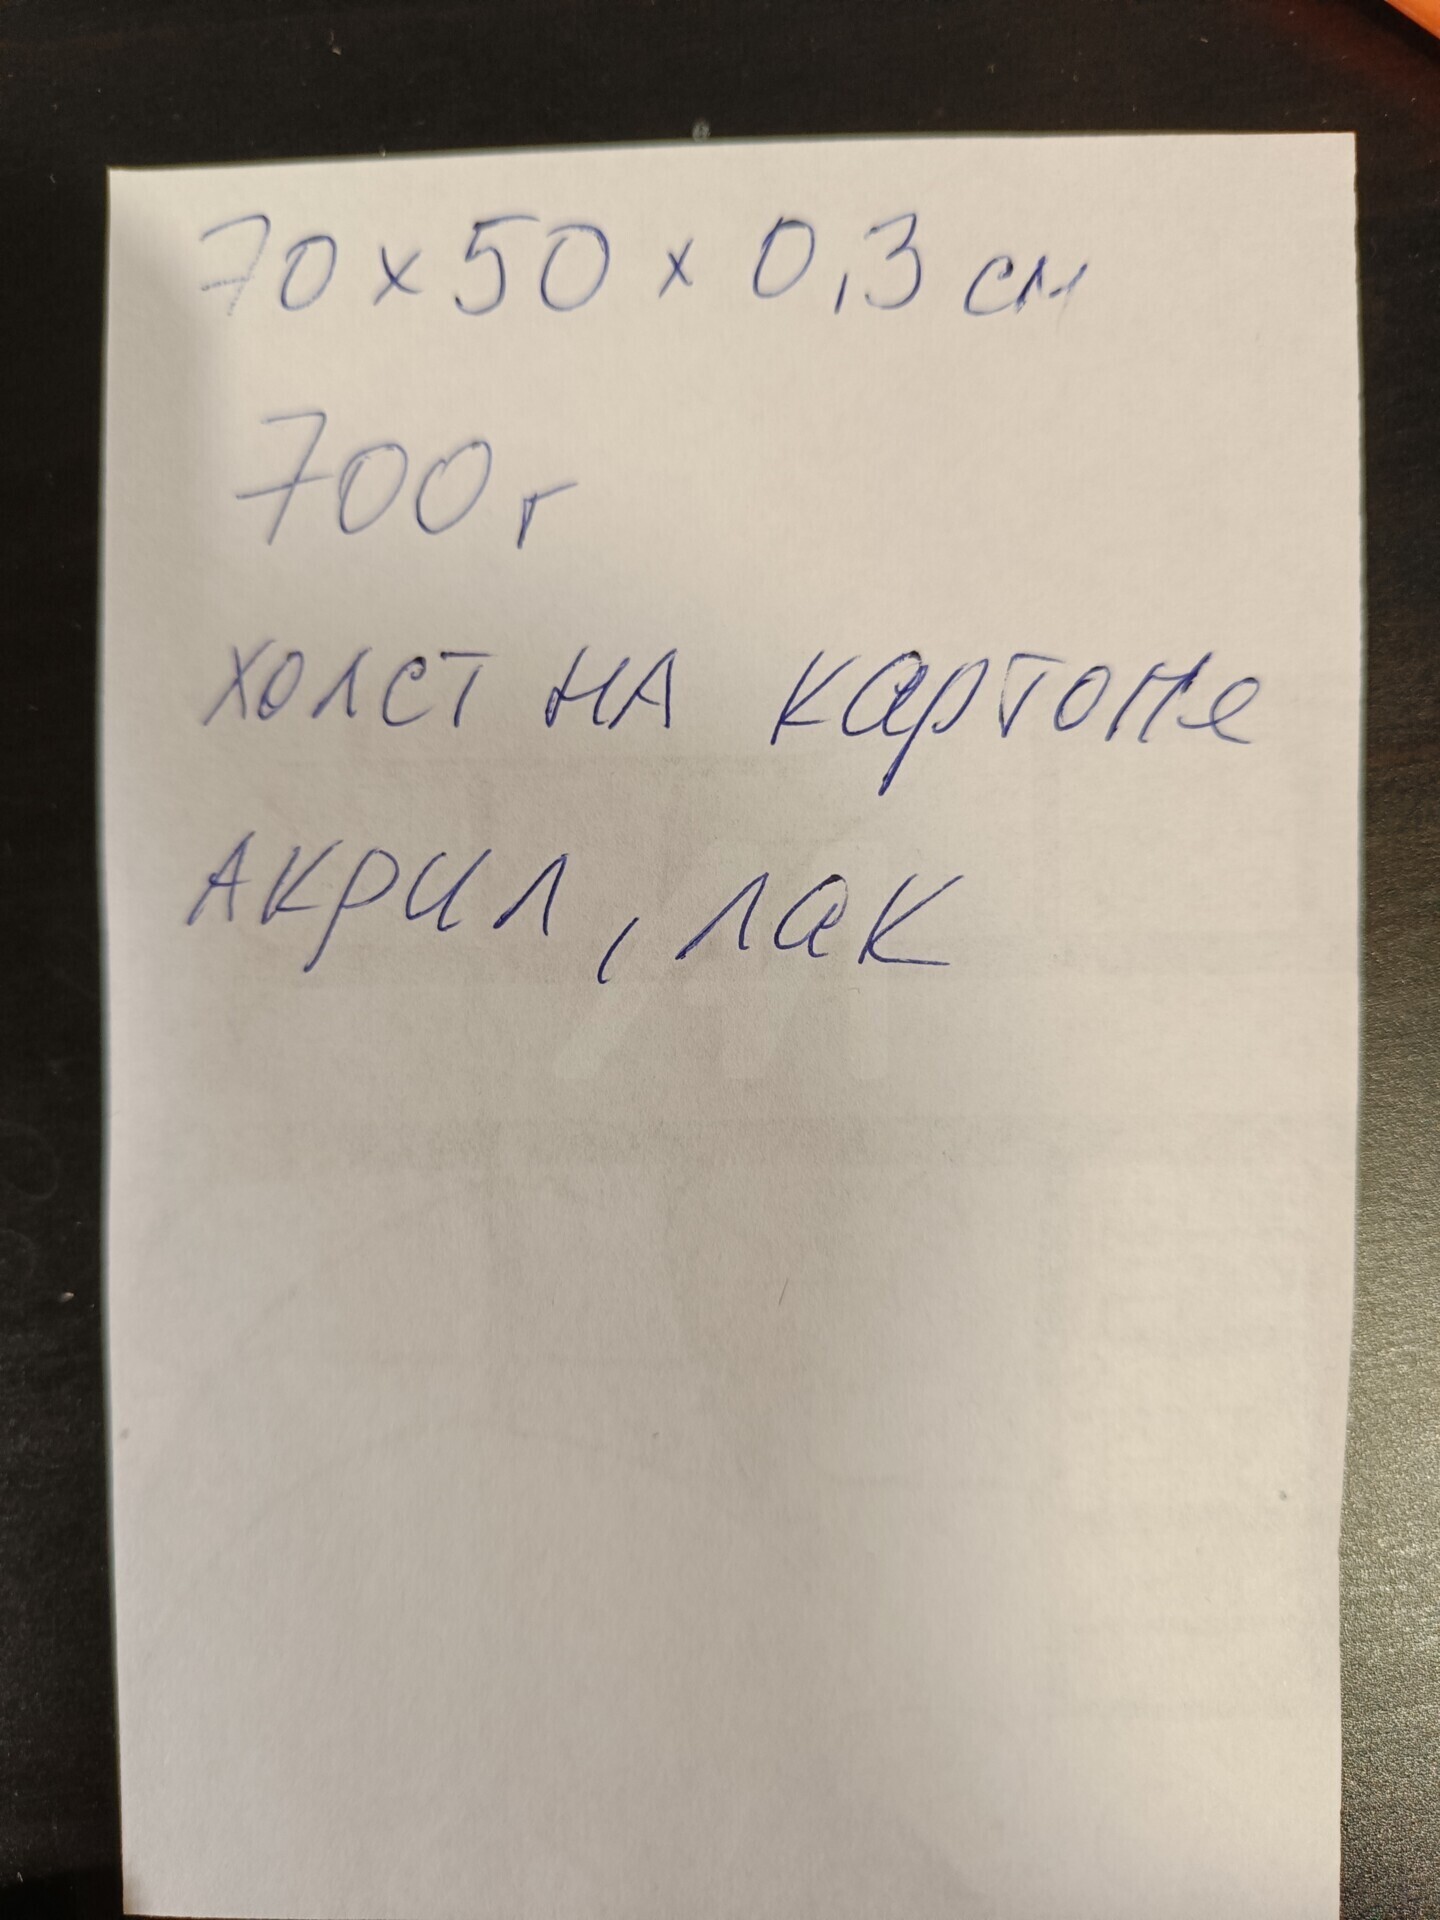 70 х 50 х 0,3 см
700 г
холст на картоне
акрил, лак